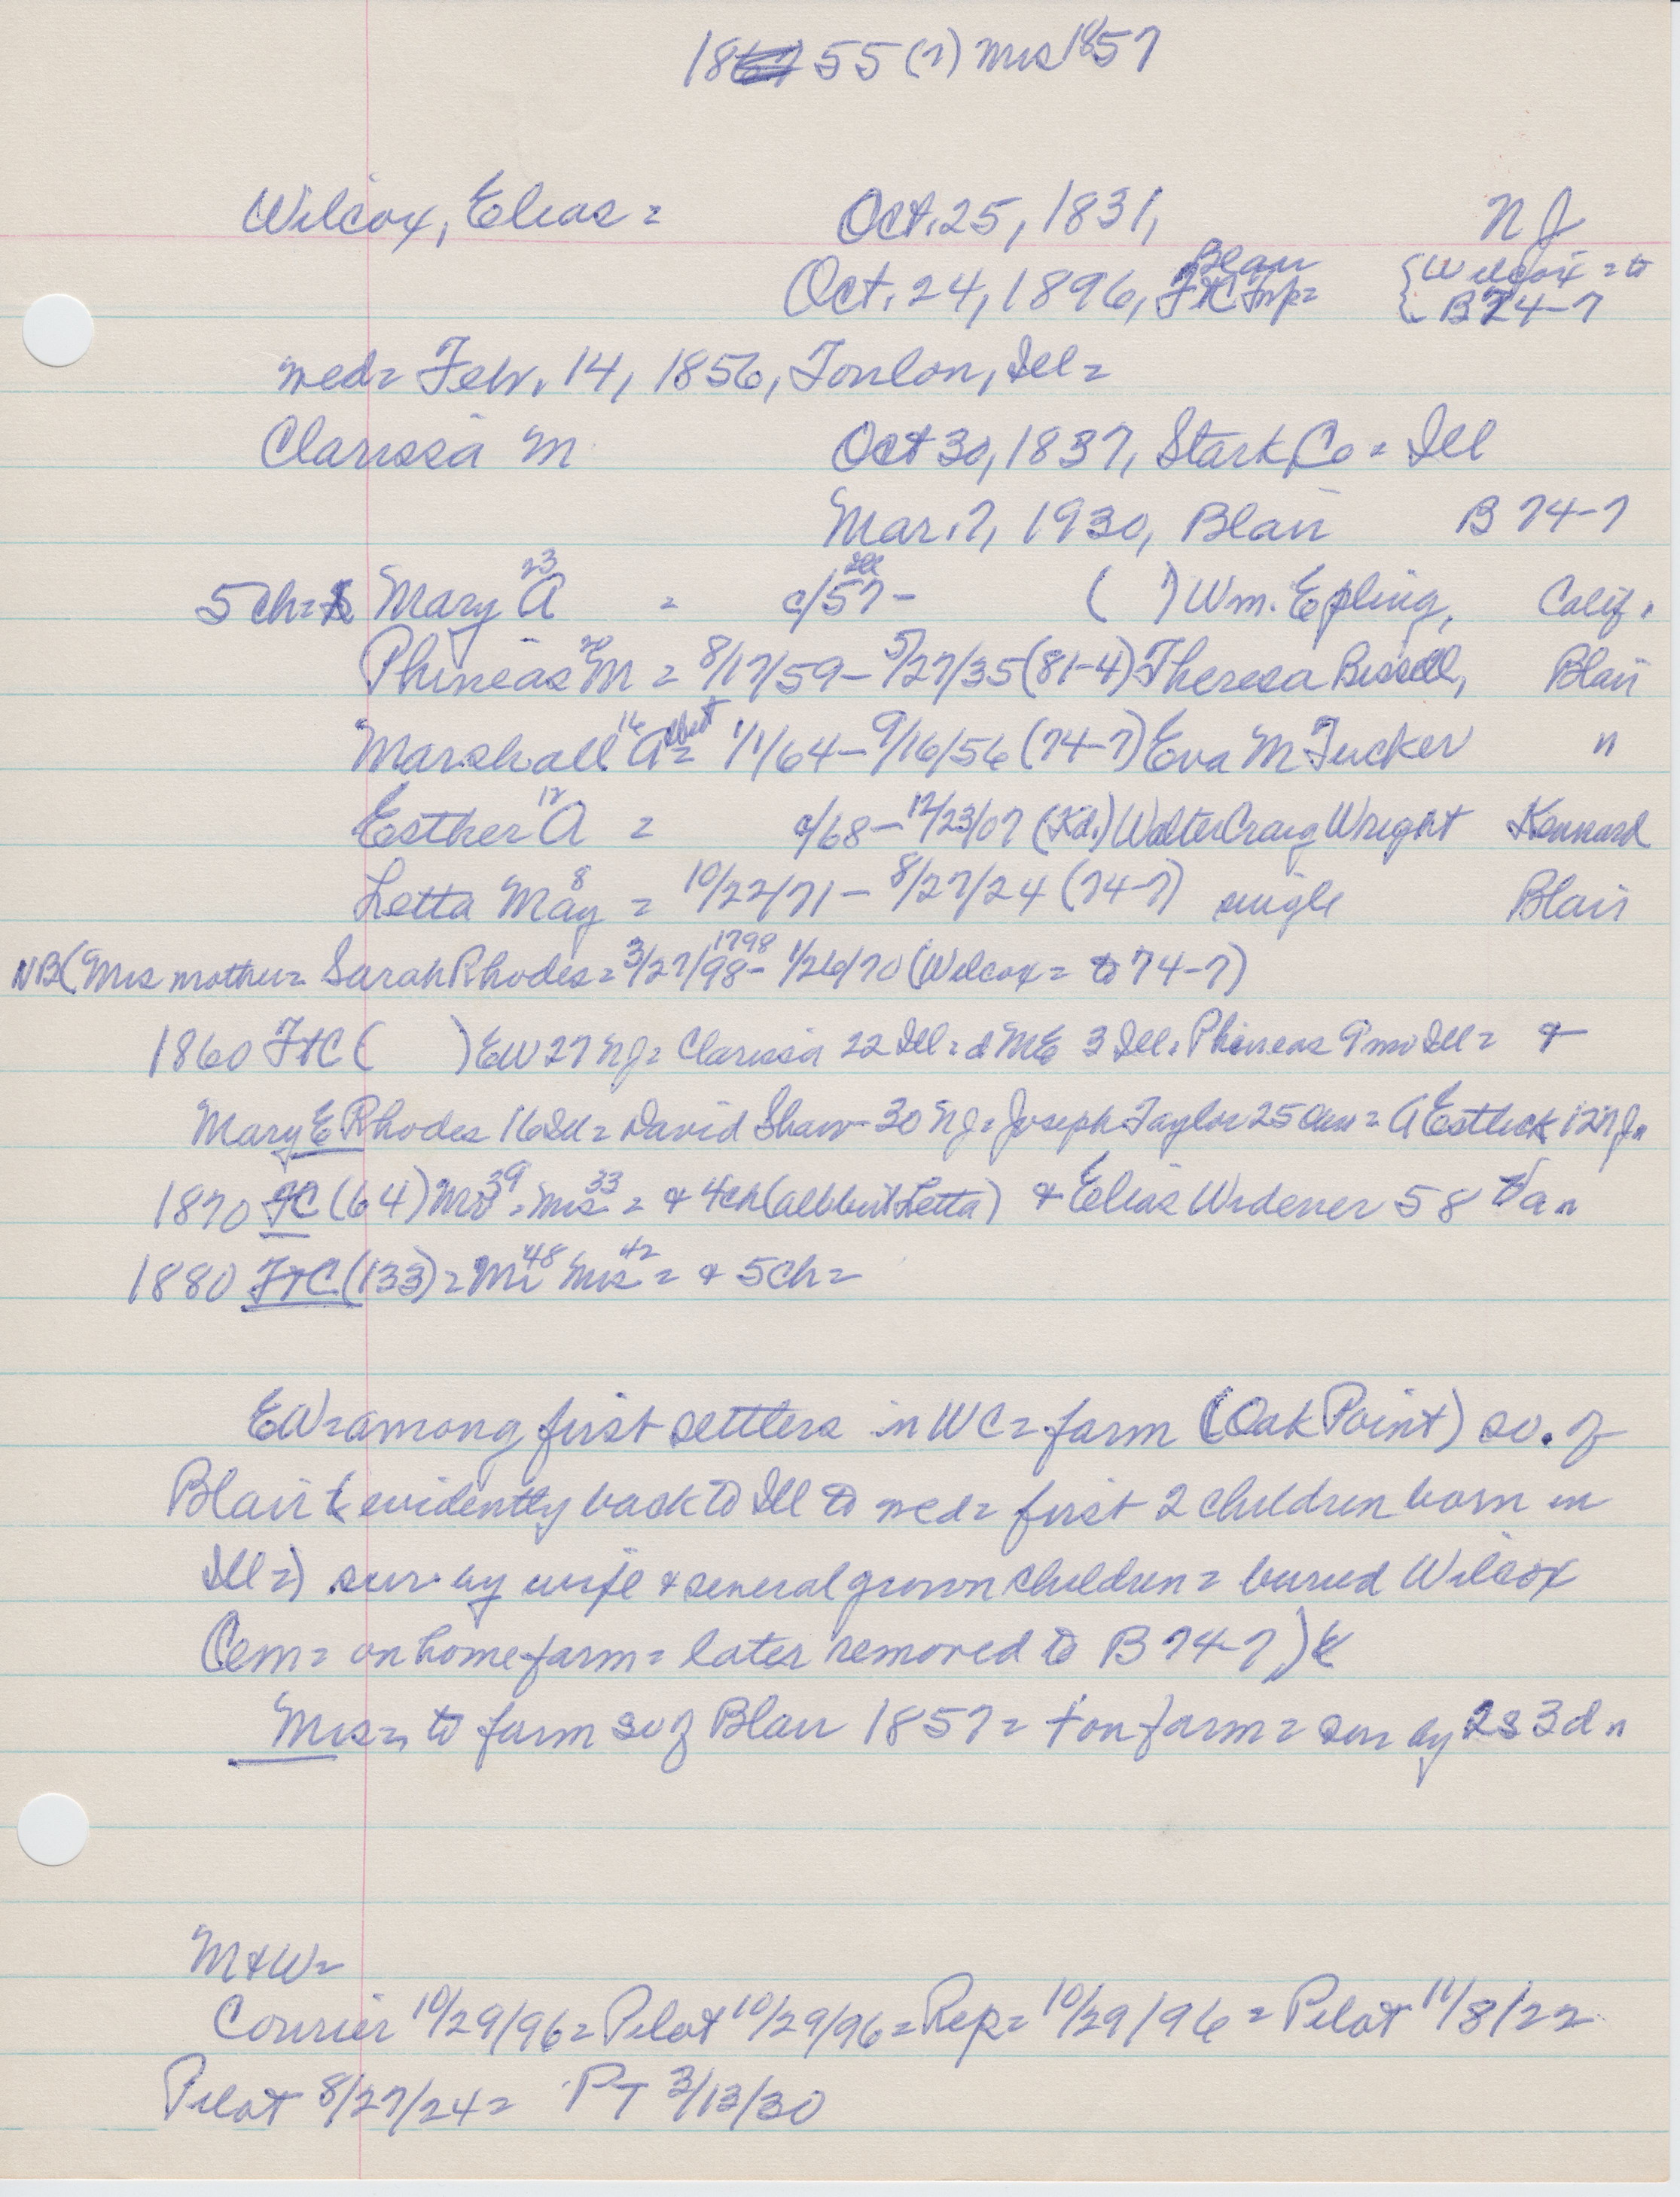 18 55 (?) Mrs 1857
Wilcox, Elias = Oct. 25, 1831, N J
Oct. 24, 1896, Blair FtC Twp = {Wilcox = to
{B 74-7
med = Febr. 14, 1856, Toulon, Ill =
Clarissa M Oct 30, 1837, Stark Co = Ill
Mar. 7, 1930, Blair B 74-7
5 ch = Mary A 23 = c/57 - Ill ( ) Wm. Epling, Calif.
Phineas M 20 = 8/17/59 - 5/27/35 (81-4) Theresa Bissell, Blair
Marshall Albert 16 = 1/1/64 - 9/16/56 (74-7) Eva M Tucker "
Esther A 12 = c/68 - 12/23/07 (Kd.) Walter Craig Wright Kennard
Letta May 8 = 10/22/71 - 8/27/24 (74-7) single Blair
NB (Mrs mother = Sarah Rhodes = 3/27/98 1798 - 1/26/70 (Wilcox = to 74-7)
1860 FtC ( ) EW 27 NJ = Clarissa 22 Ill = d ME 3 Ill = Phineas 9 mo Ill = &
Mary E Rhodes 16 Ill = David Shaw 30 NJ = Joseph Taylor 25 = A Estlick 12 NJ =
1870 FC (64) Mr 39 = Mrs 33 = & 4 ch (all but Letta) & Elias Widener 58 Va =
1880 FtC (133) = Mr 48 Mrs 42 = & 5 ch =
EW = among first settlers in WC = farm (Oak Point) so. of
Blair (evidently back to Ill to med = first 2 children born in
Ill =) sur. by wife & several grown children = buried Wilcox
Cem = on home farm = later removed to B 74-7)
Mrs = to farm so of Blair 1857 = + on farm = sur by 2s 3d =
M & W =
Courier 10/29/96 = Pilot 10/29/96 = Rep = 10/29/96 = Pilot 11/8/22
Pilot 8/27/24 = PT 3/13/30